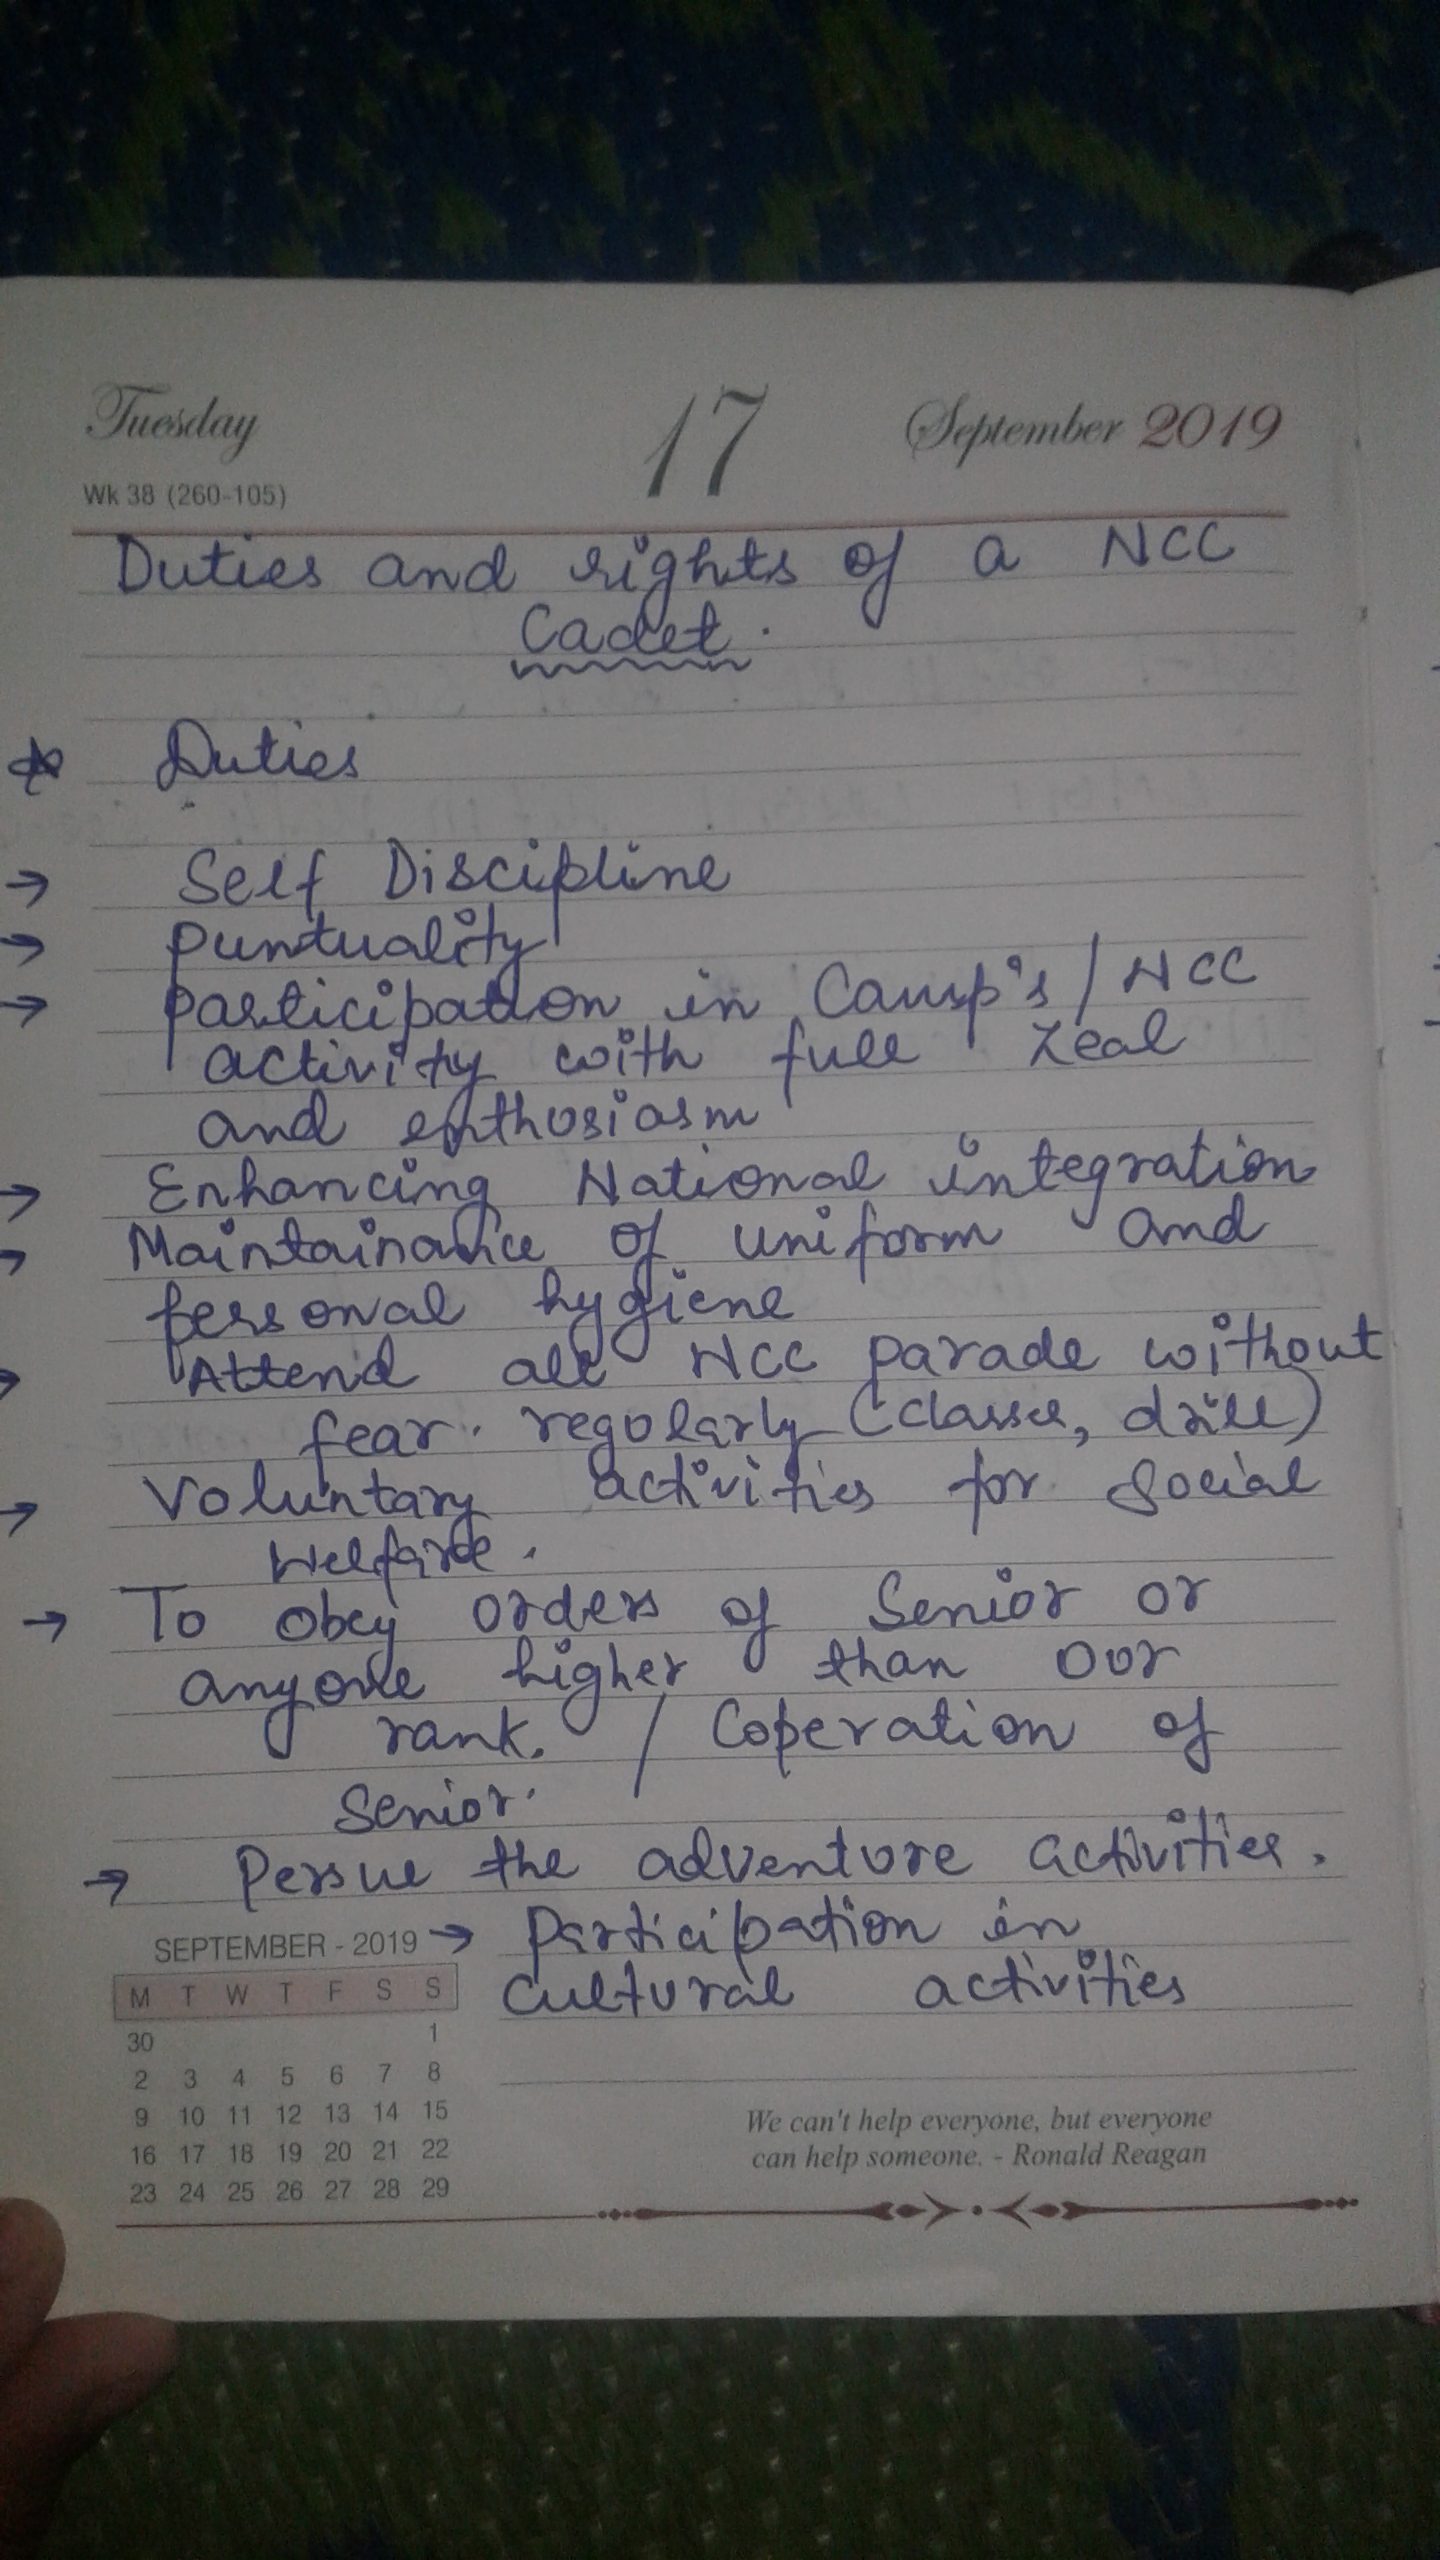 Tuesday 17 September 2019
Wk 38 (260-105)
Duties and rights of a NCC
Cadet.
* Duties
→ Self Discipline
→ puntuality
→ participation in Camp's / NCC
activity with full zeal
and enthosiasm
→ Enhancing National integration
→ Maintainance of uniform and
personal hygiene
→ Attend all NCC parade without
fear. regolarly (classes, drill)
→ Voluntary activities for social
Welfare.
→ To obey orders of Senior or
anyone higher than oor
rank. / Coperation of
Senior.
→ Persue the adventore activities.
→ Participation in
cultural activities
SEPTEMBER - 2019
M T W T F S S
30 1
2 3 4 5 6 7 8
9 10 11 12 13 14 15
16 17 18 19 20 21 22
23 24 25 26 27 28 29
We can't help everyone, but everyone
can help someone. - Ronald Reagan